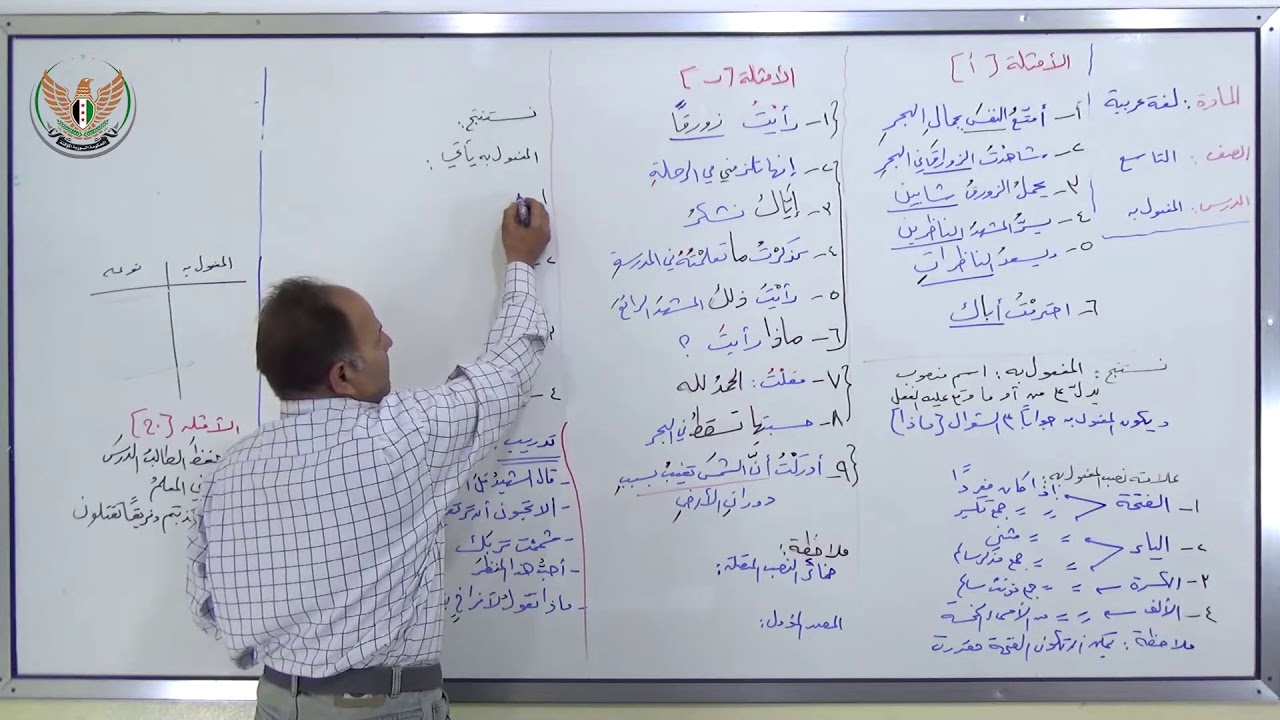 المادة: لغة عربية
الصف: التاسع
الدرس: المفعول به
الأمثلة [أ]
١- أمتّعُ النفسَ بجمالِ البحرِ
٢- شاهدْتُ الزوارقَ في البحرِ
٣- يحملُ الزورقُ شابين
٤- يسرُّ المشهدُ الناظرين
٥- ويسعدُ الناظراتِ
٦- احترمْتُ أباك
نستنتج: المفعول به: اسم منصوب
يدلّ على من أو ما وقع عليه الفعل
ويكون المفعول به جواباً على السؤال [ماذا]
علامة نصب المفعول به:
١- الفتحة إذا كان مفرداً
= = جمع تكسير
٢- الياء = = مثنى
= = جمع مذكر سالم
٣- الكسرة = = جمع مؤنث سالم
٤- الألف = = من الأسماء الخمسة
ملاحظة: يمكن أن تكون الفتحة مقدرة
الأمثلة [ب]
١- رأيْتُ زورقاً
٢- إنها تلزمني في الرحلةِ
٣- إيّاك نشكرُ
٤- تذكرْتُ ما تعلمْتهُ في المدرسةِ
٥- رأيْتُ ذلك المشهدَ الرائعَ
٦- ماذا رأيتَ ؟
٧- فقلْتُ: الحمد لله
٨- حسبتها تسقطُ في البحر
٩- أدركْتُ أنَّ الشمسَ تغيبُ بسببِ
دورانِ الأرضِ
ملاحظة:
ضمائر النصب المتصلة:
المصدر المؤول:
نستنتج:
المفعول به يأتي:
١
٢-
٣
٤-
تدريب
- قال الشهيد قبل
- ألا تحبون أن
- شممْت تربك
- أحبُّ هذا المنظرَ
- ماذا تقول لآخر
المفعول به نوعه
الأمثلة [ج]
حفظَ الطالبُ الدرسَ
المعلمُ
كذبتم وفريقاً تقتلون